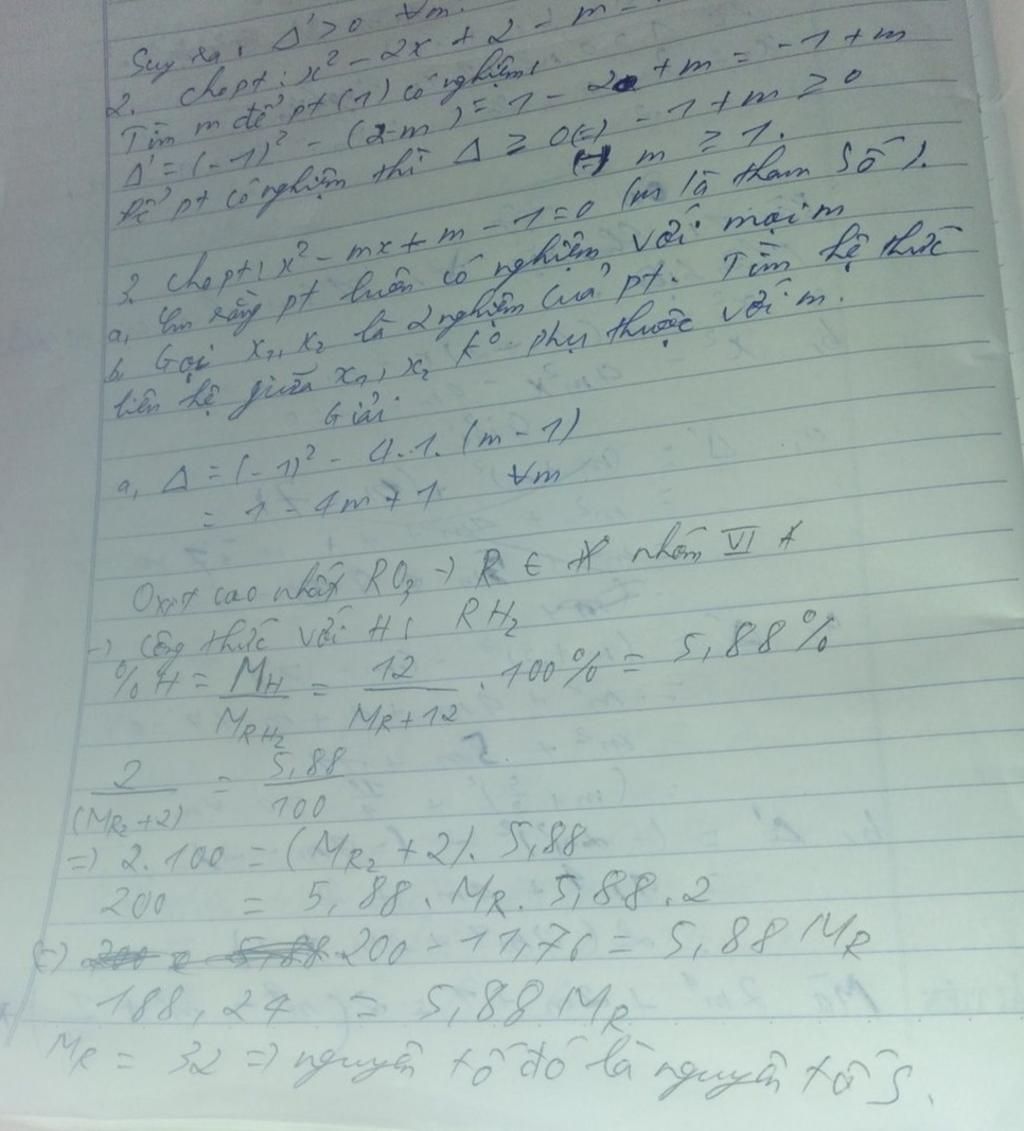 Suy ra: Δ' > 0 ∀m.
2. Cho pt: x² - 2x + 2 - m =
Tìm m để pt (1) có nghiệm
Δ' = (-1)² - (2-m) = 1 - 2 + m = -1 + m
Để pt có nghiệm thì Δ ≥ 0 (=) -1 + m ≥ 0
(=) m ≥ 1.
3. Cho pt: x² - mx + m - 1 = 0 (m là tham số).
a, Cm rằng pt luôn có nghiệm với mọi m
b, Gọi x₁, x₂ là 2 nghiệm của pt. Tìm hệ thức
liên hệ giữa x₁, x₂ k⁰ phụ thuộc với m.
Giải
a, Δ = (-1)² - 4.1.(m - 1)
= 1 - 4m + 1 ∀m
Oxit cao nhất RO₃ → R ∈ nhóm VI A
→ Công thức với H: RH₂
%H = M_H / M_RH₂ = 12 / M_R + 12 . 100% = 5,88%
2 / (M_R₂ + 2) = 5,88 / 100
=> 2.100 = (M_R₂ + 2). 5,88
200 = 5,88. M_R. 5,88.2
(=) 200 - 11,76 = 5,88 M_R
188,24 = 5,88 M_R
M_R = 32 => nguyên tố đó là nguyên tố S.